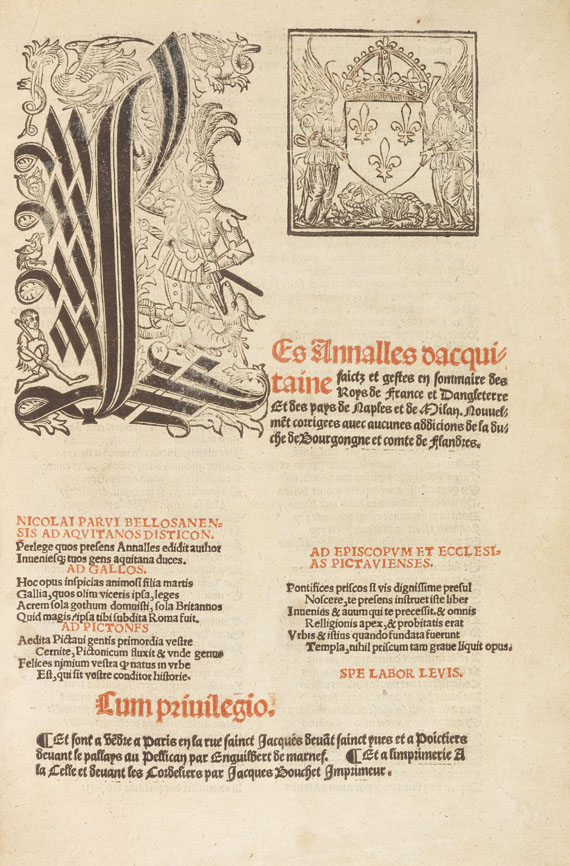 LEs Annalles dacqui-
taine faictz et gestes en sommaire des
Roys de France et Dangleterre
Et des pays de Naples et de Milan. Nouuel-
mēt corrigees auec aucunes addicions de la du-
che de Bourgongne et comte de Flandres.
NICOLAI PARVI BELLOSANEN-
SIS AD AQVITANOS DISTICON.
Perlege quos presens Annalles edidit author
Inuenies tuos gens aquitana duces.
AD GALLOS.
Hoc opus inspicias animosi filia martis
Gallia, quos olim viceris ipsa, leges
Acrem sola gothum domuisti, sola Britannos
Quid magis ipsa tibi subdita Roma fuit.
AD PICTONES
Aedita Pictaui gentis primordia vestre
Cernite, Pictonicum fluxit & vnde genus
Felices nimium vestra natus in vrbe
Est, qui sit vestre conditor historie.
AD EPISCOPVM ET ECCLESI-
AS PICTAVIENSES.
Pontifices priscos si vis dignissime presul
Noscere, te presens instruet iste liber
Inuenias & auum qui te precessit, & omnis
Relligionis apex, & probitatis erat
Vrbis & istius quando fundata fuerunt
Templa, nihil priscum tam graue liquit opus.
SPE LABOR LEVIS.
Cum priuilegio.
¶ Et sont a vēdre a Paris en la rue sainct Jacques deuāt sainct yues et a Poictiers
deuant le pallays au Pellican par Enguilbert de marnef. ¶ Et a limprimerie A
la Celle et deuant les Cordeliers par Jacques Bouchet Imprimeur.